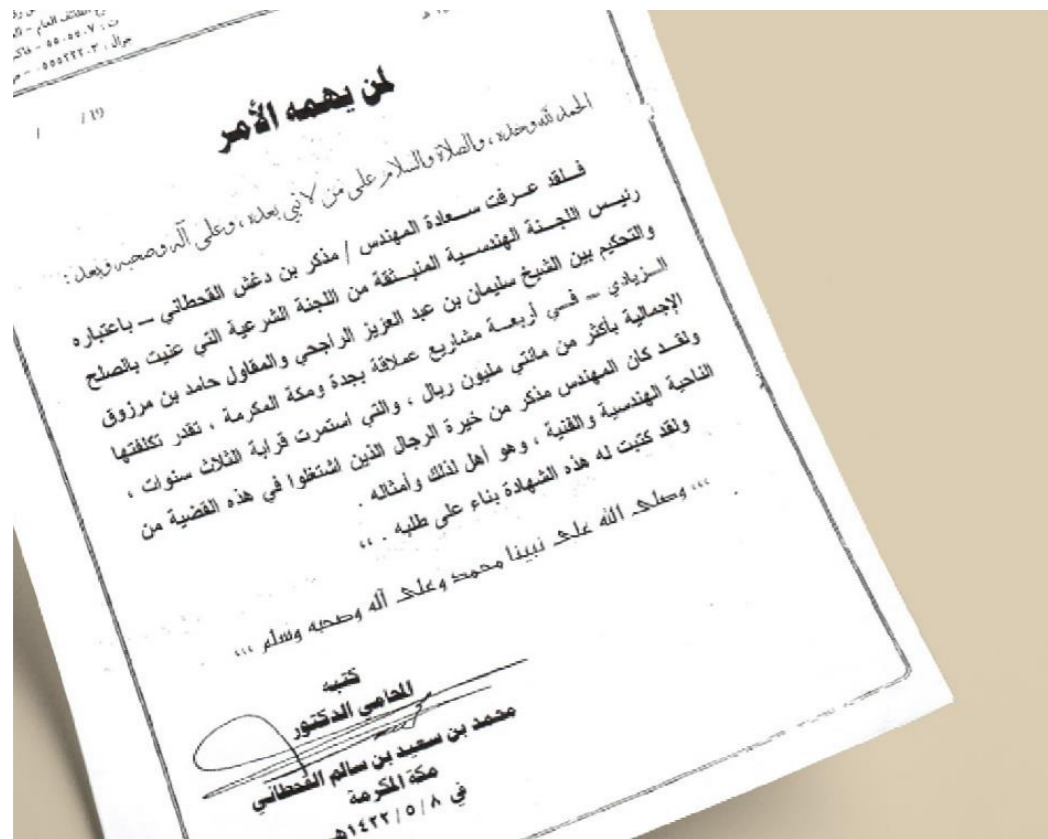 الطائف العام
ت : ٥٥٠٥٥٠٧ – فاكس
جوال :
/ / 19
لمن يهمه الأمر
الحمد لله وحده ، والصلاة والسلام على من لا نبي بعده ، وعلى آله وصحبه وبعد :
فلقد عرفت سعادة المهندس / مذكر بن دغش القحطاني – باعتباره
رئيس اللجنة الهندسية المنبثقة من اللجنة الشرعية التي عنيت بالصلح
والتحكيم بين الشيخ سليمان بن عبد العزيز الراجحي والمقاول حامد بن مرزوق
الزيادي – في أربعة مشاريع عملاقة بجدة ومكة المكرمة ، تقدر تكلفتها
الإجمالية بأكثر من مائتي مليون ريال ، والتي استمرت قرابة الثلاث سنوات ،
ولقد كان المهندس مذكر من خيرة الرجال الذين اشتغلوا في هذه القضية من
الناحية الهندسية والفنية ، وهو أهل لذلك وأمثاله .
ولقد كتبت له هذه الشهادة بناء على طلبه . ،،
،،، وصلى الله على نبينا محمد وعلى آله وصحبه وسلم ،،،
كتبه
المحامي الدكتور
محمد بن سعيد بن سالم القحطاني
مكة المكرمة
في ١٤٢٢/٥/٨هـ